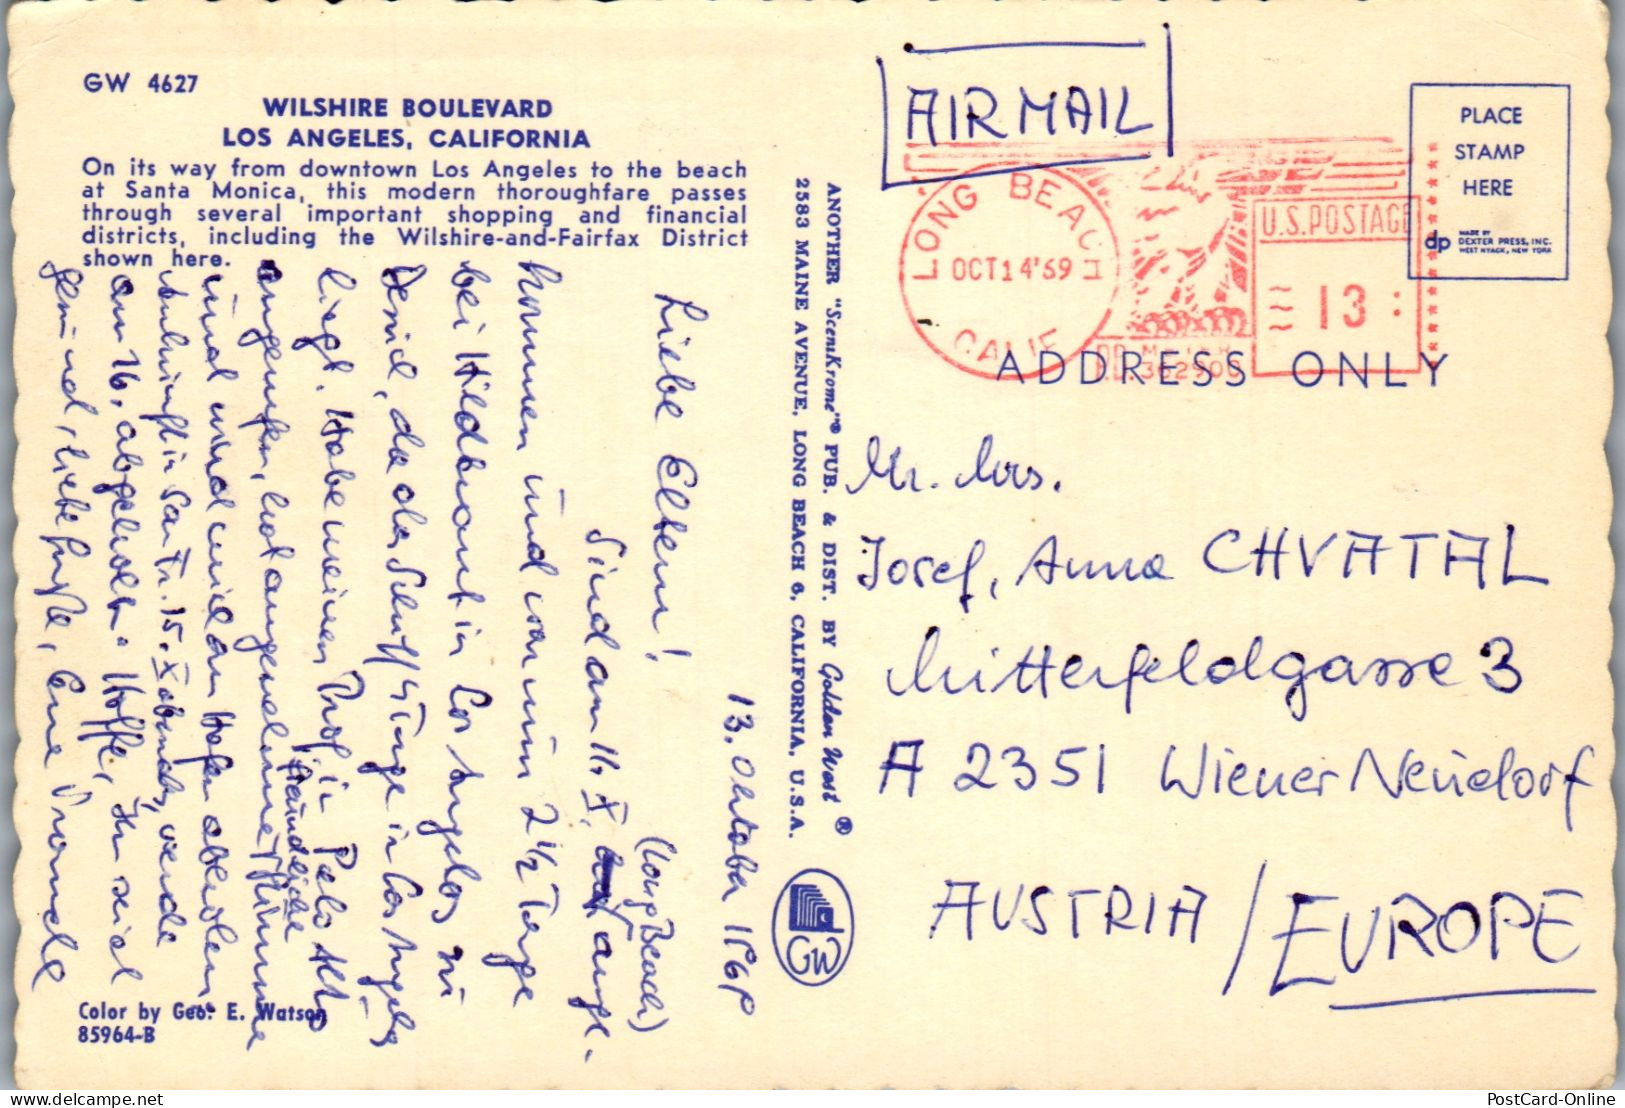 GW 4627
WILSHIRE BOULEVARD
LOS ANGELES, CALIFORNIA
On its way from downtown Los Angeles to the beach
at Santa Monica, this modern thoroughfare passes
through several important shopping and financial
districts, including the Wilshire-and-Fairfax District
shown here.
13. Oktober
Liebe Eltern! (Long Beach)
Sind am 11. X. ange-
kommen und waren 2 1/2 Tage
bei Hildbrandt in Los Angelos zu
da das Schiff in Los Angelos
liegt. Habe meinen Prof. in Palo Alto
angerufen, hat angenehme Stimme
freundliche
und wird mich am Hafen abholen.
in San Fr. 15. X abends, werde
am 16. abgeholt. Hoffe, Ihr seid
gesund, liebe Grüße, Eure
Color by Geo. E. Watson
85964-B
ANOTHER "SceniKrome"® PUB. & DIST. BY Golden West ®
2583 MAINE AVENUE, LONG BEACH 6, CALIFORNIA, U.S.A.
GW
AIR MAIL
LONG BEACH
OCT 14'69
CALIF
U.S. POSTAGE
13
PLACE
STAMP
HERE
dp MADE BY
DEXTER PRESS, INC.
WEST NYACK, NEW YORK
ADDRESS ONLY
Mr. Mrs.
Josef, Anna CHVATAL
Mitterfeldgasse 3
A 2351 Wiener Neudorf
AUSTRIA / EUROPE
PostCard-Online